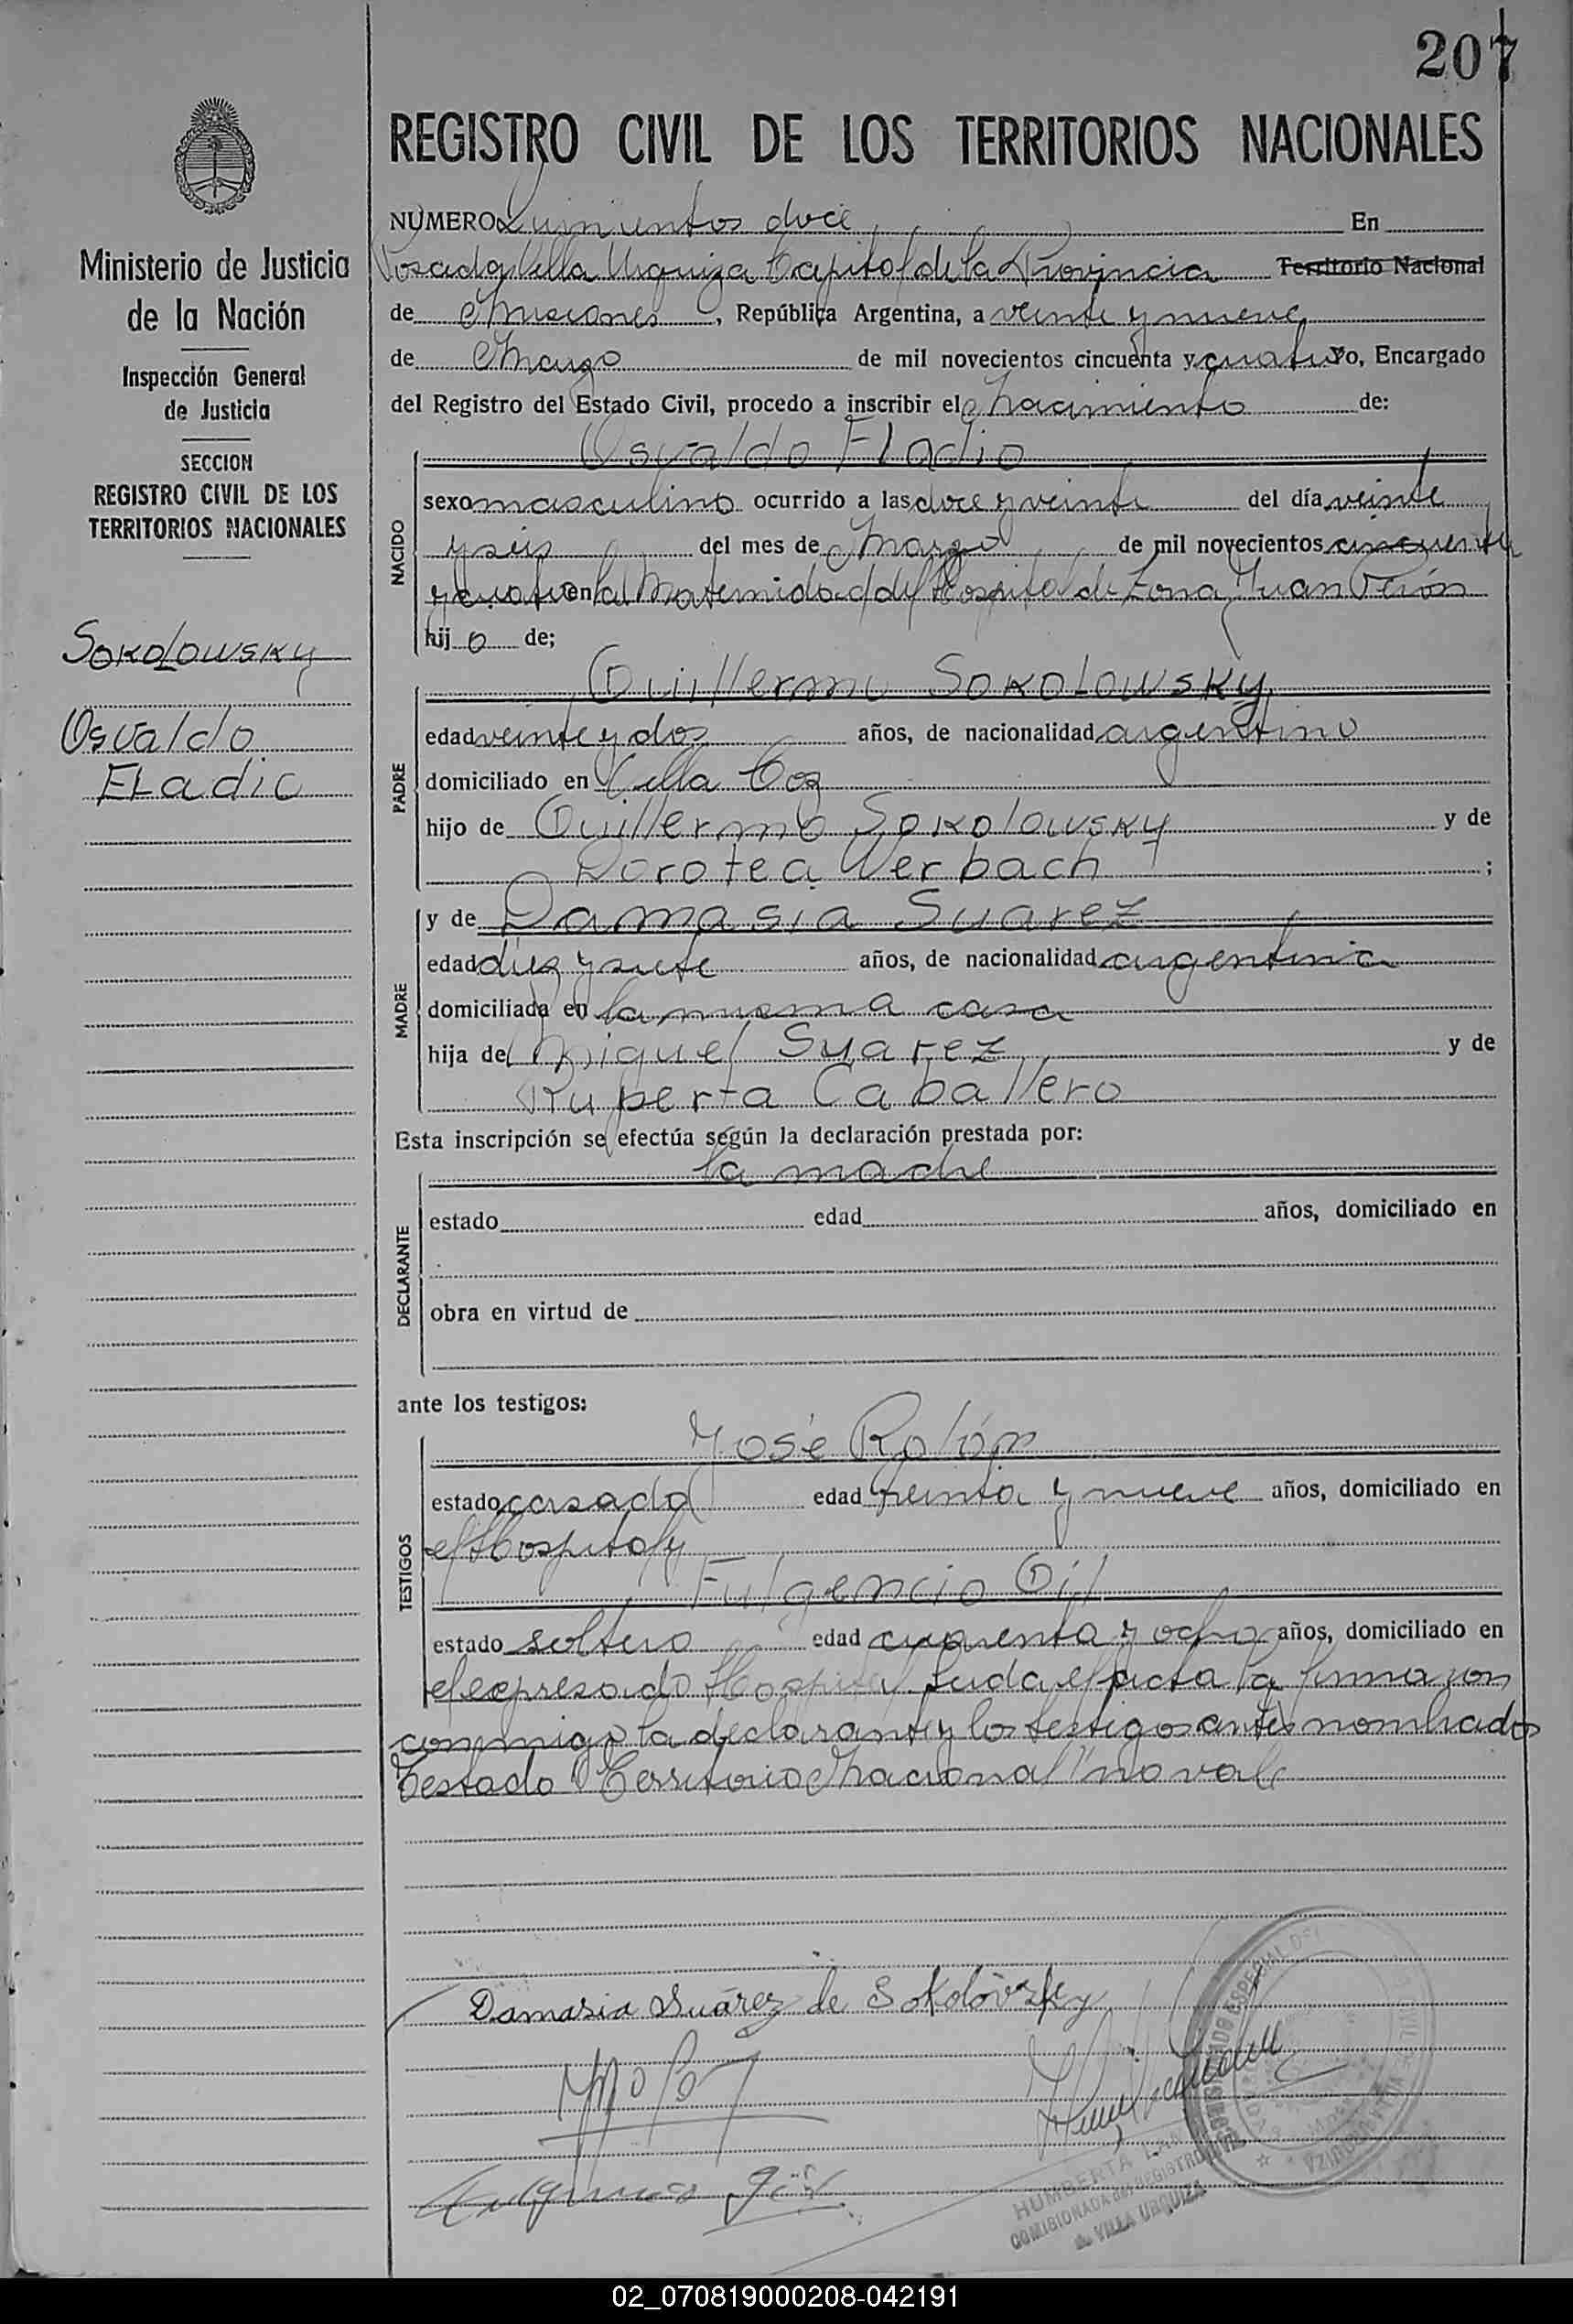 207
REGISTRO CIVIL DE LOS TERRITORIOS NACIONALES
Ministerio de Justicia
de la Nación
Inspección General
de Justicia
SECCION
REGISTRO CIVIL DE LOS
TERRITORIOS NACIONALES
Sokolowsky
Osvaldo
Eladio
NUMERO Quinientos doce En
Posadas Villa Urquiza Capital de la Provincia Territorio Nacional
de Misiones, República Argentina, a veinte y nueve
de Marzo de mil novecientos cincuenta y cuatro Yo, Encargado
del Registro del Estado Civil, procedo a inscribir el nacimiento de:
Osvaldo Eladio
NACIDO
sexo masculino ocurrido a las doce y veinte del día veinte
y seis del mes de Marzo de mil novecientos cincuenta
y cuatro en la Maternidad del Hospital de Zona Juan Perón
hijo de;
Guillermo Sokolowsky
PADRE
edad veinte y dos años, de nacionalidad argentino
domiciliado en Villa Coz
hijo de Guillermo Sokolowsky y de
Dorotea Werbach ;
y de Damasia Suarez
MADRE
edad diez y siete años, de nacionalidad argentina
domiciliada en la misma casa
hija de Miguel Suarez y de
Ruperta Caballero
Esta inscripción se efectúa según la declaración prestada por:
la madre
DECLARANTE
estado edad años, domiciliado en
obra en virtud de
ante los testigos:
José Rolón
TESTIGOS
estado casado edad treinta y nueve años, domiciliado en
el Hospital y
Fulgencio Gil
estado soltero edad cuarenta y ocho años, domiciliado en
el expresado Hospital. Leida el acta la firmaron
conmigo la declarante y los testigos antes nombrados
Testado "Territorio Nacional" no vale
Damasia Suárez de Sokolóvsky
Fulgencio Gil
HUMBERTA
COMISIONADA del REGISTRO CIVIL
de VILLA URQUIZA
02_070819000208-042191